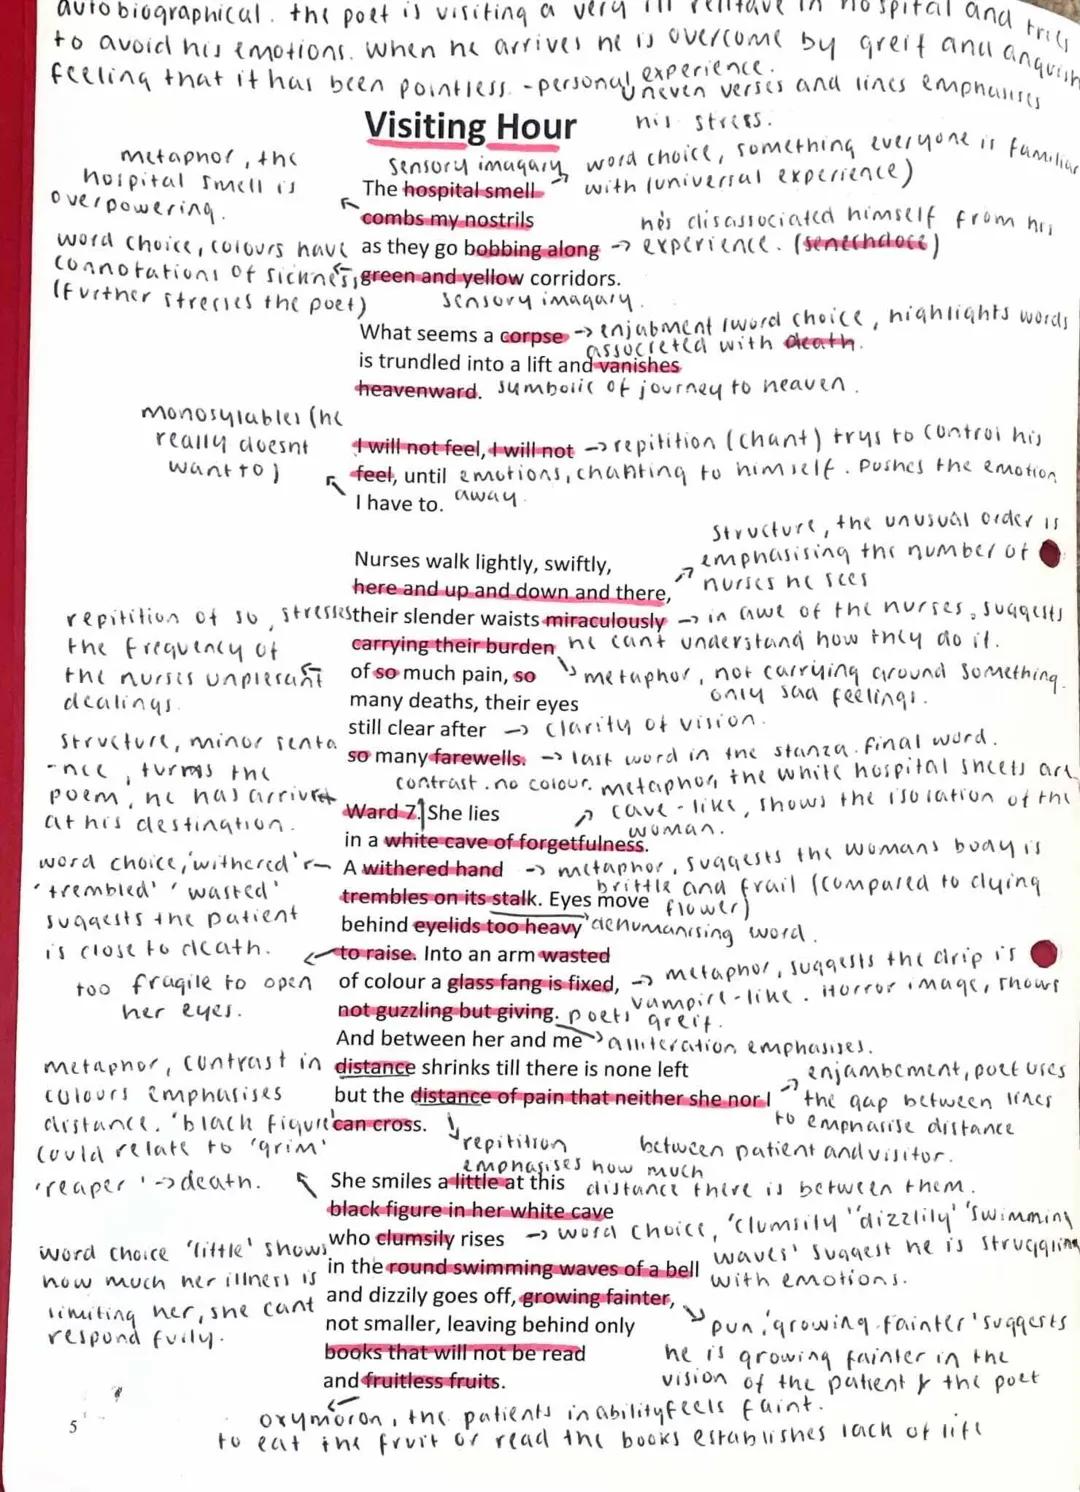 autobiographical. the poet is visiting a very ill relitave in hospital and tries
to avoid his emotions. when he arrives he is overcome by greif and anguish
feeling that it has been pointless. - personal experience.
uneven verses and lines emphasises
his stress.
Visiting Hour
sensory imagary
word choice, something everyone is familiar
with (universal experience)
metaphor, the
hospital smell is
overpowering.
The hospital smell
combs my nostrils
as they go bobbing along
green and yellow corridors.
he's disassociated himself from his
experience. (senechdoce)
word choice, colours have
connotations of sickness
(further stresses the poet)
sensory imagary.
What seems a corpse
is trundled into a lift and vanishes
heavenward.
enjabment / word choice, highlights words
assocreted with death.
sumbolic of journey to heaven.
monosylables (he
really doesnt
want to)
I will not feel, I will not
feel, until
I have to.
repitition (chant) trys to control his
emotions, chanting to himself. Pushes the emotion
away.
structure, the unusual order is
emphasising the number of
nurses he sees
Nurses walk lightly, swiftly,
here and up and down and there,
their slender waists miraculously
carrying their burden
of so much pain, so
many deaths, their eyes
still clear after
so many farewells.
repitition of so, stresses
the frequency of
the nurses unplesant
dealings.
in awe of the nurses, suggests
he cant understand how they do it.
metaphor, not carrying around something.
only sad feelings.
clarity of vision.
last word in the stanza. final word.
structure, minor senta
-nce, turns the
poem, he has arrived
at his destination.
contrast. no colour. metaphor, the white hospital sheets are
cave-like, shows the isolation of the
woman.
Ward 7. She lies
in a white cave of forgetfulness.
A withered hand
trembles on its stalk. Eyes move
behind eyelids too heavy
to raise. Into an arm wasted
of colour a glass fang is fixed,
not guzzling but giving.
And between her and me
distance shrinks till there is none left
but the distance of pain that neither she nor I
can cross.
word choice, 'withered'
'trembled' 'wasted'
suggests the patient
is close to death.
metaphor, suggests the womans body is
brittle and frail (compared to dying
flower)
dehumanising word.
too fragile to open
her eyes.
metaphor, suggests the drip is
vampire-like. Horror image, shows
poets greif.
alliteration emphasises.
metaphor, contrast in
colours emphasises
distance. 'black figure'
could relate to 'grim'
'reaper' -> death.
enjambement, poet uses
the gap between lines
to emphasise distance
between patient and visitor.
repitition
emphasises how much
distance there is between them.
She smiles a little at this
black figure in her white cave
who clumsily rises
in the round swimming waves of a bell
and dizzily goes off, growing fainter,
not smaller, leaving behind only
books that will not be read
and fruitless fruits.
word choice, 'clumsily' 'dizzlily' 'swimming
waves' suggest he is struggling
with emotions.
word choice 'little' shows
how much her illness is
limiting her, she cant
respond fully.
pun, 'growing fainter' suggests
he is growing fainter in the
vision of the patient & the poet
feels faint.
oxymoron, the patients inability
to eat the fruit or read the books establishes lack of life
5